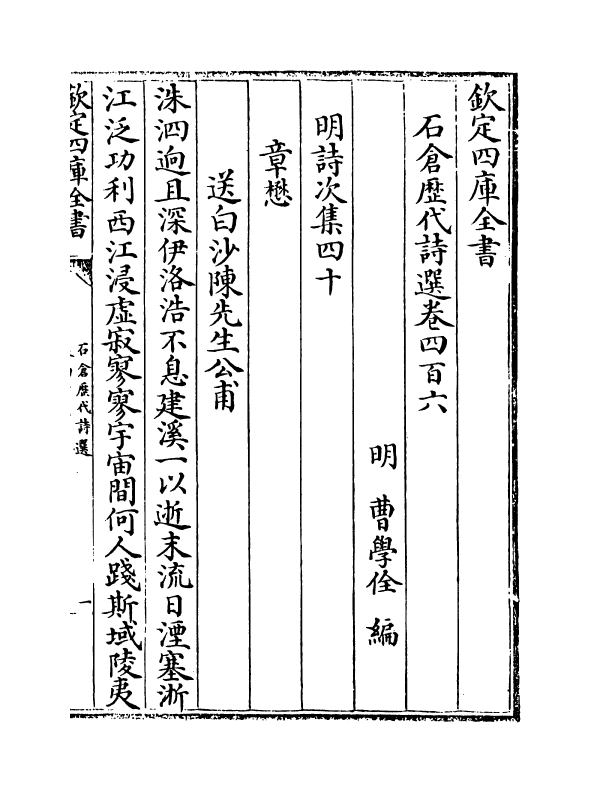 欽定四庫全書
石倉歷代詩選卷四百六
明 曹學佺 編
明詩次集四十
章懋
送白沙陳先生公甫
洙泗逈且深伊洛浩不息建溪一以逝末流日湮塞浙
江泛功利西江浸虛寂寥寥宇宙間何人踐斯域陵夷
欽定四庫全書
石倉歷代詩選
一